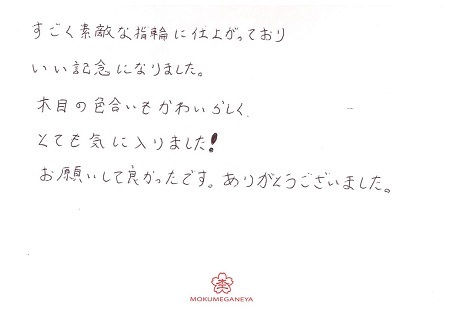 すごく素敵な指輪に仕上がっており
いい記念になりました。
木目の色合いもかわいらしく、
とても気に入りました!
お願いして良かったです。ありがとうございました。
MOKUMEGANEYA